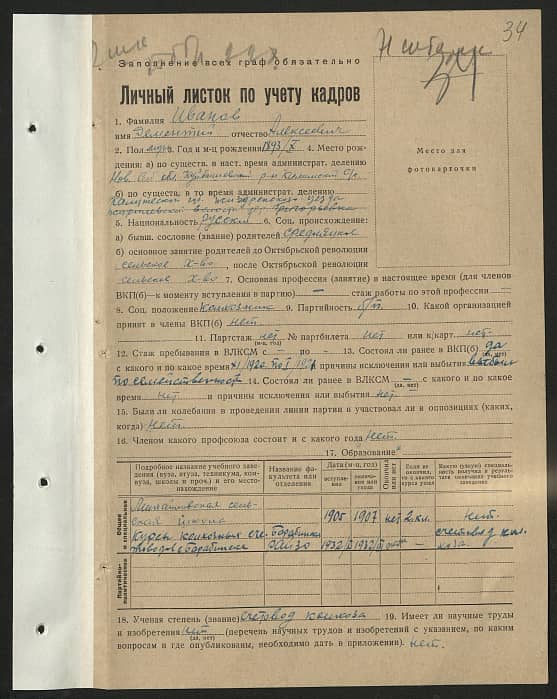 34
Заполнение всех граф обязательно
Личный листок по учету кадров
Место для
фотокарточки
1. Фамилия Иванов
имя Дементий отчество Алексеевич
2. Пол муж. 3. Год и м-ц рождения 1893/X 4. Место рож-
дения: а) по существ. в наст. время администрат. делению
Нов. Об. обл. Куйбышевский р-н
б) по существ. в то время администрат. делению
Калужской губ. уезда
волости дер. Григорьевка
5. Национальность Русский 6. Соц. происхождение:
а) бывш. сословие (звание) родителей Середняцкое
б) основное занятие родителей до Октябрьской революции
сельское х-во, после Октябрьской революции
сельское х-во 7. Основная профессия (занятие) в настоящее время (для членов
ВКП(б)—к моменту вступления в партию) — стаж работы по этой профессии —
8. Соц. положение Колхозник 9. Партийность б/п 10. Какой организацией
принят в члены ВКП(б) Нет.
11. Партстаж нет № партбилета нет или к/карт. нет
(м-ц, год)
12. Стаж пребывания в ВЛКСМ с — по - 13. Состоял ли ранее в ВКП(б) да
(да, нет)
с какого и по какое время XI/1920 по I 1921 причины исключения или выбытия
по семейственной 14. Состоял ли ранее в ВЛКСМ — с какого и по какое
(да, нет)
время нет и причины исключения или выбытия нет.
15. Были ли колебания в проведении линии партии и участвовал ли в оппозициях (каких,
когда) Нет.
16. Членом какого профсоюза состоит и с какого года Нет.
17. Образование
Подробное название учебного заве-
дения (вуза, втуза, техникума, ком-
вуза, школы и проч.) и его ме-
стонахождение
Название фа-
культета или
отделения
Дата (м-ц, год)
вступле-
ния
окончания
или ухода
Окончил
или нет
Если не
окончил, то
с какого
курса ушел
Какую (узкую) специаль-
ность получил в резуль-
тате окончания учебного
заведения
Общее
и специальное
сель-
ская школа 1905 1907 нет 2 кл. Нет.
Курсы колхозных сче- Барабинск. счетовод кол-
товодов г. Барабинск Райзо 1932/I 1932/II да — хоза.
Партийно-
политическое
18. Ученая степень (звание) счетовод колхоза 19. Имеет ли научные труды
и изобретения нет (перечень научных трудов и изобретений с указанием, по каким
(да, нет)
вопросам и где опубликованы, необходимо дать в приложении). Нет.